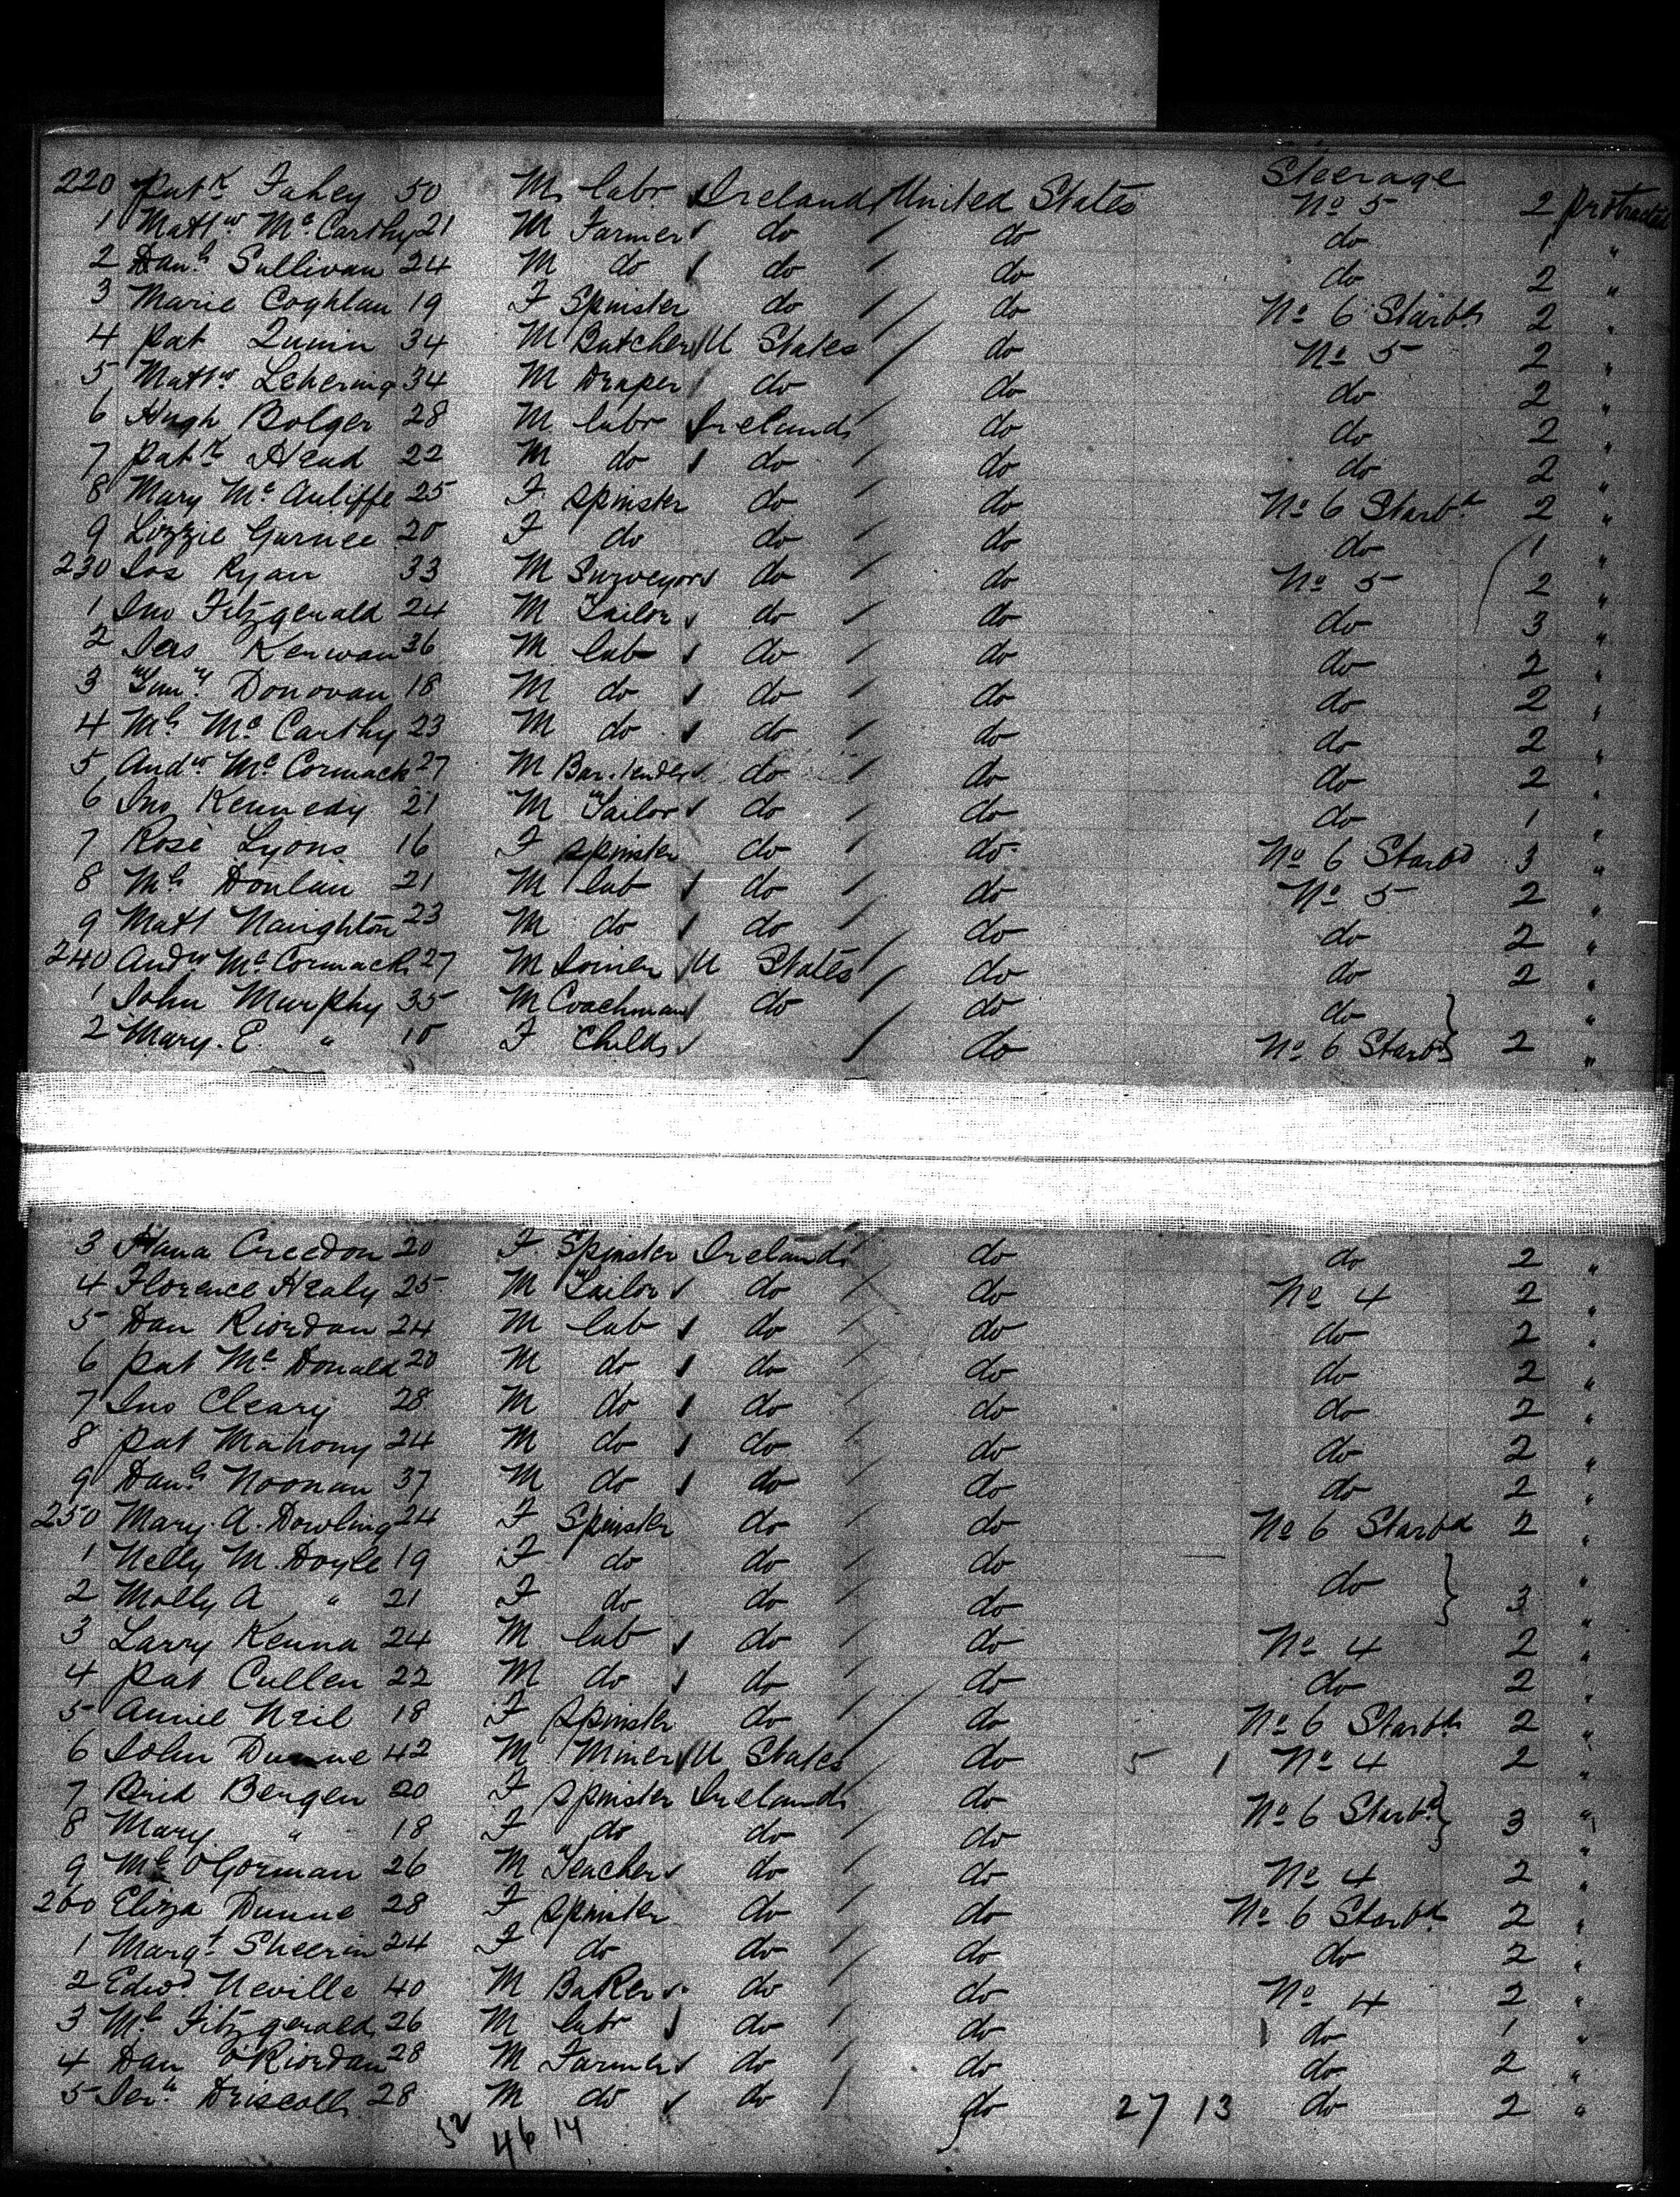 Steerage
220 Patk Fahey 50 M labr Ireland United States No 5 2 protracted
1 Mattw Mc Carthy 21 M Farmer do do do 1 "
2 Danl Sullivan 24 M do do do do 2 "
3 Marie Coghlan 19 F Spinster do do No 6 Starbd 2 "
4 Pat Quinn 34 M Butcher U States do No 5 2 "
5 Mattw 34 M Draper do do do 2 "
6 Hugh Bolger 28 M labr Ireland do do 2 "
7 Patk Head 22 M do do do do 2 "
8 Mary Mc Auliffe 25 F Spinster do do No 6 Starbd 2 "
9 Lizzie 20 F do do do do 1 "
230 Jos Ryan 33 M Surveyor do do No 5 2 "
1 Jno Fitzgerald 24 M Tailor do do do 3 "
2 Jas Kerwan 36 M lab do do do 2 "
3 Donovan 18 M do do do do 2 "
4 Ml Mc Carthy 23 M do do do do 2 "
5 Andw Mc Cormack 27 M Bar.tender do do do 2 "
6 Jno Kennedy 21 M Tailor do do do 1 "
7 Rose Lyons 16 F Spinster do do No 6 Starbd 3 "
8 Ml Donlan 21 M lab do do No 5 2 "
9 Matt Naughton 23 M do do do do 2 "
240 Andw Mc Cormack 27 M Joiner U States do do 2 "
1 John Murphy 35 M Coachman do do do "
2 Mary. E. " 10 F Child do No 6 Starbd 2 "
3 Hana Creedon 20 F Spinster Ireland do do 2 "
4 Florence Healy 25 M Tailor do do No 4 2 "
5 Dan Riordan 24 M lab do do do 2 "
6 Pat Mc Donald 20 M do do do do 2 "
7 Jno Cleary 28 M do do do do 2 "
8 Pat Mahony 24 M do do do do 2 "
9 Danl Noonan 37 M do do do do 2 "
250 Mary. A. Dowling 24 F Spinster do do No 6 Starbd 2 "
1 Nelly M. Doyle 19 F do do do do "
2 Molly A " 21 F do do do 3 "
3 Larry Kenna 24 M lab do do No 4 2 "
4 Pat Cullen 22 M do do do do 2 "
5 Annie Neil 18 F Spinster do do No 6 Starbd 2 "
6 John Dunne 42 M Miner U States do 5 1 No 4 2 "
7 Brid Bergen 20 F Spinster Ireland do No 6 Starbd "
8 Mary " 18 F do do do 3 "
9 Ml O'Gorman 26 M Teacher do do No 4 2 "
260 Eliza Dunne 28 F Spinster do do No 6 Starbd 2 "
1 Margt Sheerin 24 F do do do do 2 "
2 Edwd Neville 40 M Baker do do No 4 2 "
3 Ml Fitzgerald 26 M labr do do do 1 "
4 Dan O'Riordan 28 M Farmer do do do 2 "
5 Jerh Driscoll 28 M do do do 27 13 do 2 "
46 14